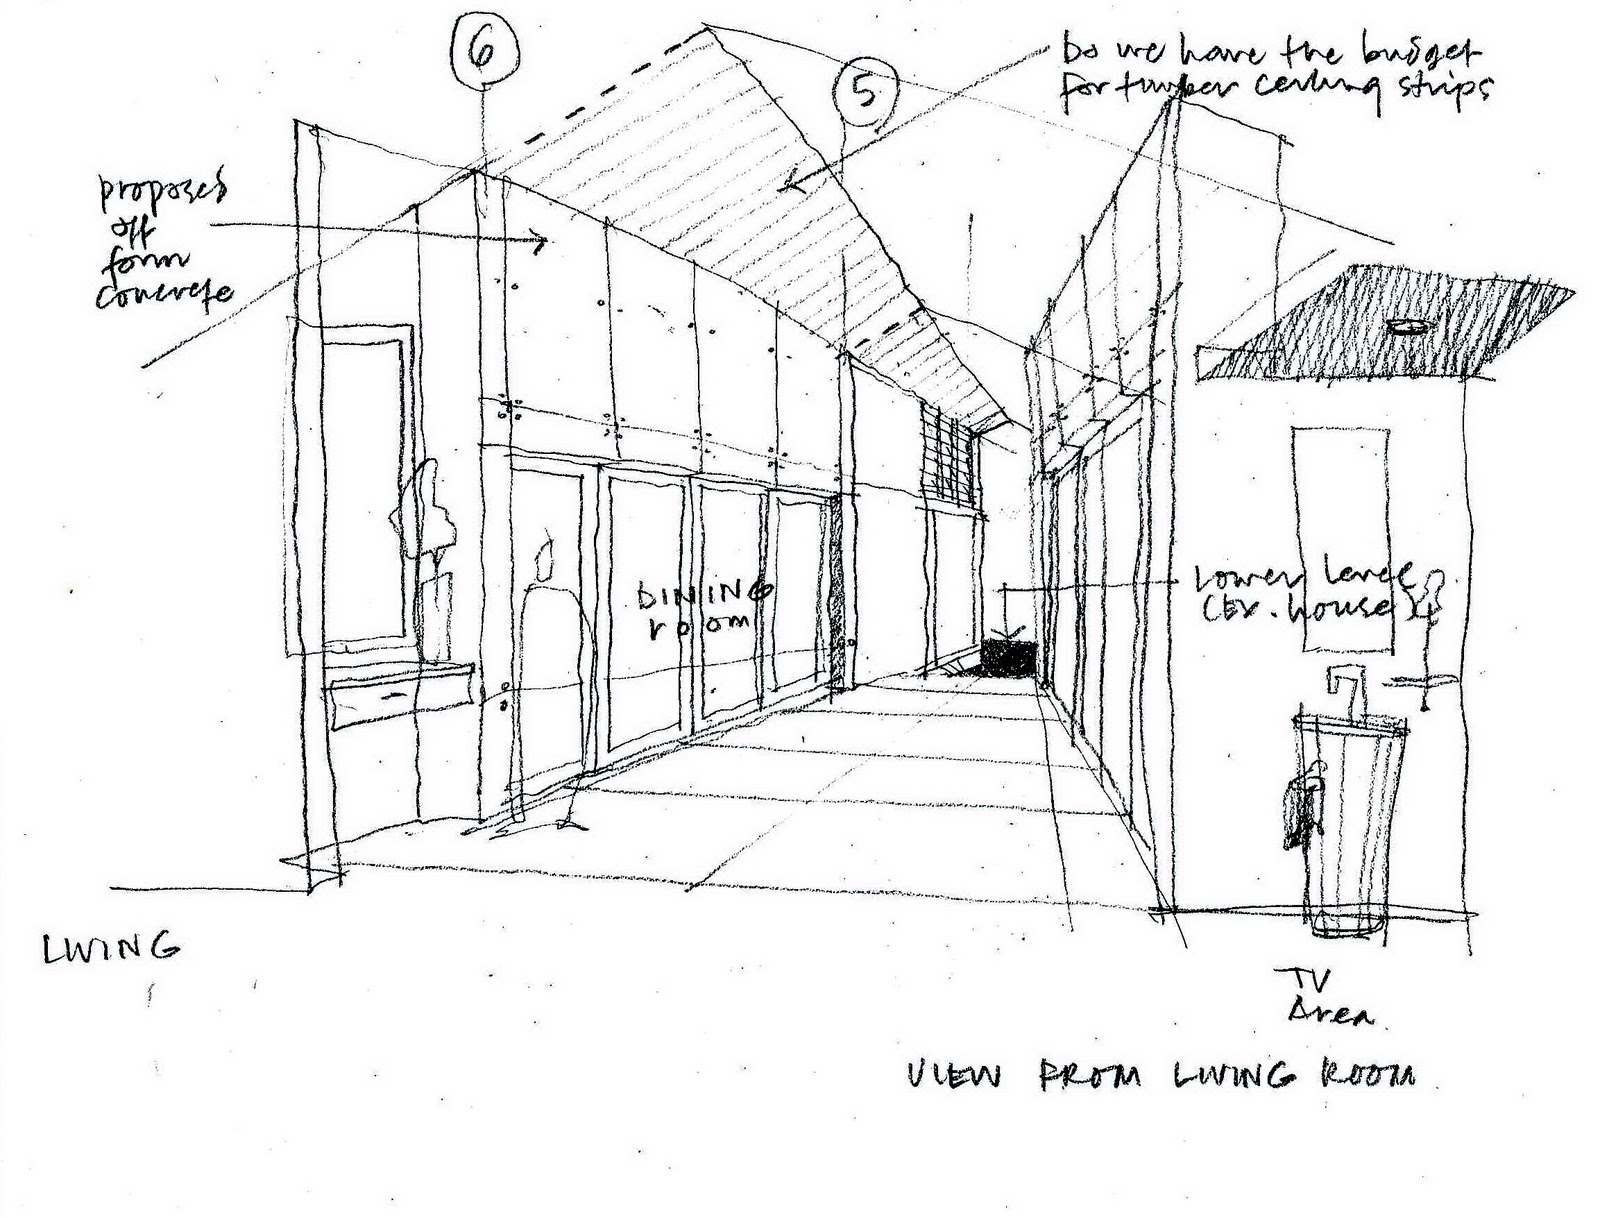 6
5
Do we have the budget
for timber ceiling strips
proposed
off
form
concrete
DINING
room
Lower level
(Ex. house
LIVING
TV
Area
VIEW FROM LIVING ROOM